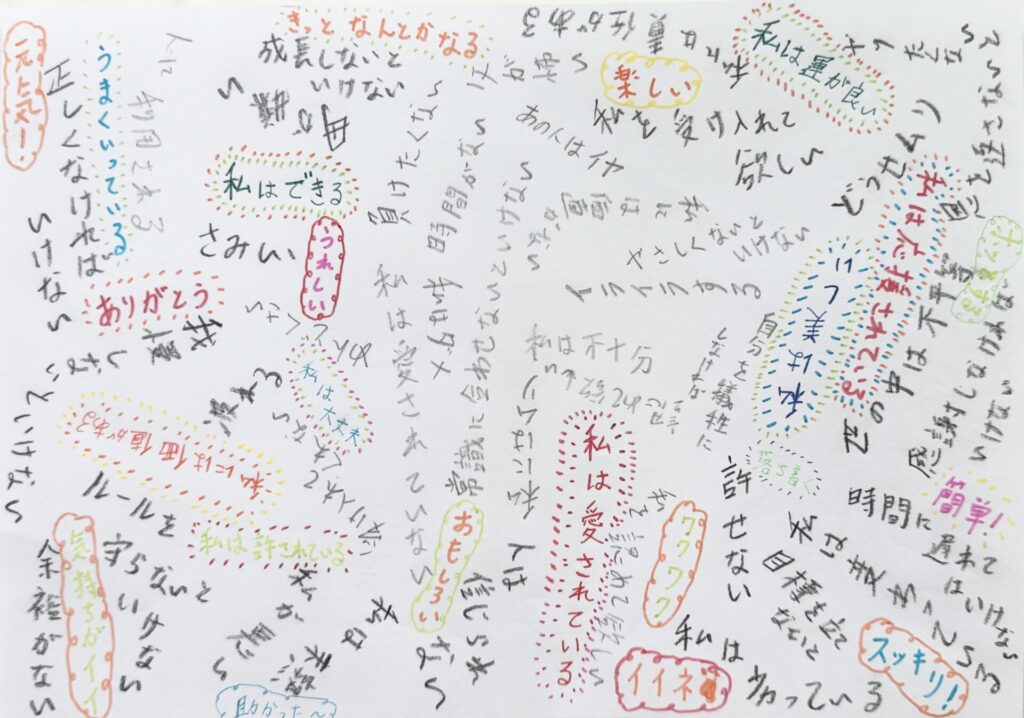 きっとなんとかなる
私は運が良い
元気!
うまくいっている
成長しないと
いけない
母が
嫌い
父が嫌い
楽しい
私を受け入れて
欲しい
あの人はイヤ
負けたくない
時間がない
人に
利用される
正しくなければ
いけない
私はできる
さみしい
うれしい
やさしくないと
いけない
イライラする
どっせムリ
私は応援されている
世の中は不平等
ホッとする
感謝しなければ
いけない
私は美しい
自分を犠牲に
しなければ
ありがとう
我慢
私は大丈夫
疲れる
私は愛されていない
常識に合わせないといけない
私は不十分
私にはムリ
私には価値がある
ルールを
守らないと
いけない
私は許されている
気持ちがイイ
余裕がない
おもしろい
人は
信じられない
私は
助かった~
私は愛されている
ワクワク
イイネ
許せない
落ち着く
時間に
遅れて
はいけない
簡単!
目標を立て
ないと
私は劣っている
スッキリ!